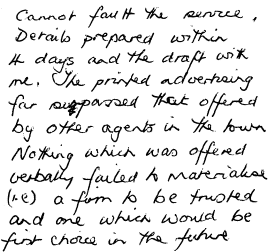 Cannot fault the service.
Details prepared within
4 days and the draft with
me. The printed advertising
far surpassed that offered
by other agents in the town
Nothing which was offered
verbally failed to materialise
(i.e) a firm to be trusted
and one which would be
first choice in the future